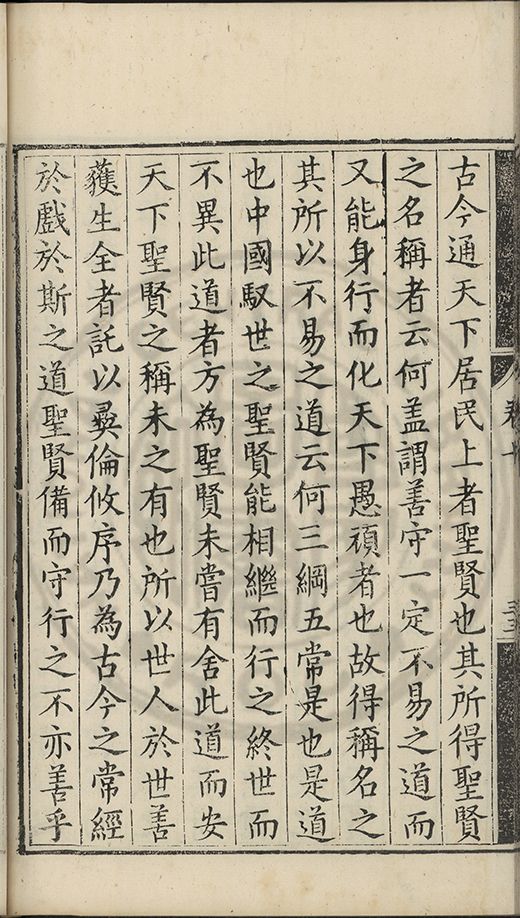 古今通天下居民上者聖賢也其所得聖賢
之名稱者云何盖謂善守一定不易之道而
又能身行而化天下愚頑者也故得稱名之
其所以不易之道云何三綱五常是也是道
也中國馭世之聖賢能相繼而行之終世而
不異此道者方為聖賢未嘗有舍此道而安
天下聖賢之稱未之有也所以世人於世善
蕿生全者託以彛倫攸序乃為古今之常經
於戲於斯之道聖賢備而守行之不亦善乎